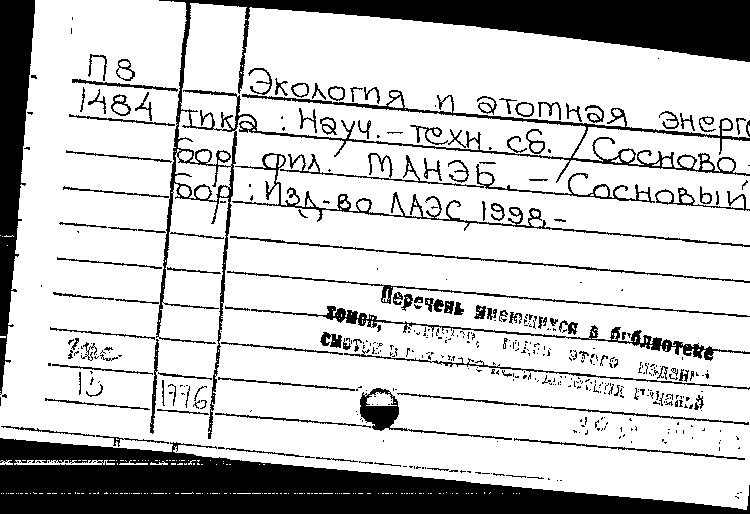 П8
Экология и атомная энерг
1484 тика : Науч.-техн. сб. / Сосново
бор фил. МАНЭБ. - Сосновый
бор : Изд-во ЛАЭС, 1998 -
Перечень имеющихся в библиотеке
томов, номеров, годов этого издания
смотри в каталоге периодических изданий
13 1776